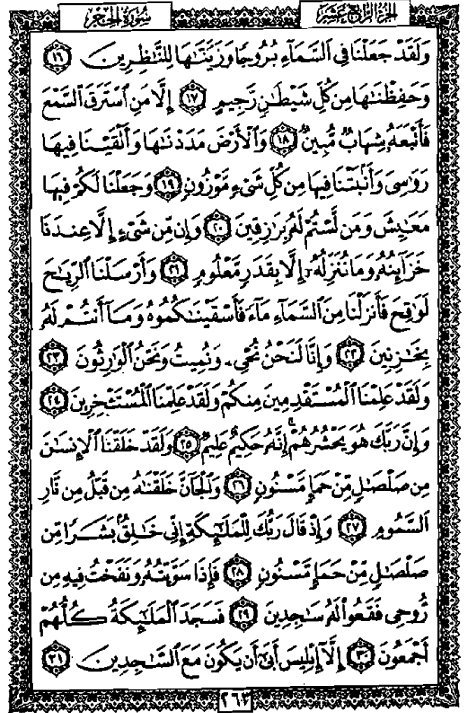 الجزء الرابع عشر
سورة الحجر
وَلَقَدْ جَعَلْنَا فِي ٱلسَّمَآءِ بُرُوجًا وَزَيَّنَّٰهَا لِلنَّٰظِرِينَ ١٦
وَحَفِظْنَٰهَا مِن كُلِّ شَيْطَٰنٍ رَّجِيمٍ ١٧ إِلَّا مَنِ ٱسْتَرَقَ ٱلسَّمْعَ
فَأَتْبَعَهُۥ شِهَابٌ مُّبِينٌ ١٨ وَٱلْأَرْضَ مَدَدْنَٰهَا وَأَلْقَيْنَا فِيهَا
رَوَٰسِىَ وَأَنۢبَتْنَا فِيهَا مِن كُلِّ شَىْءٍ مَّوْزُونٍ ١٩ وَجَعَلْنَا لَكُمْ فِيهَا
مَعَٰيِشَ وَمَن لَّسْتُمْ لَهُۥ بِرَٰزِقِينَ ٢٠ وَإِن مِّن شَىْءٍ إِلَّا عِندَنَا
خَزَآئِنُهُۥ وَمَا نُنَزِّلُهُۥٓ إِلَّا بِقَدَرٍ مَّعْلُومٍ ٢١ وَأَرْسَلْنَا ٱلرِّيَٰحَ
لَوَٰقِحَ فَأَنزَلْنَا مِنَ ٱلسَّمَآءِ مَآءً فَأَسْقَيْنَٰكُمُوهُ وَمَآ أَنتُمْ لَهُۥ
بِخَٰزِنِينَ ٢٢ وَإِنَّا لَنَحْنُ نُحْىِۦ وَنُمِيتُ وَنَحْنُ ٱلْوَٰرِثُونَ ٢٣
وَلَقَدْ عَلِمْنَا ٱلْمُسْتَقْدِمِينَ مِنكُمْ وَلَقَدْ عَلِمْنَا ٱلْمُسْتَـْٔخِرِينَ ٢٤
وَإِنَّ رَبَّكَ هُوَ يَحْشُرُهُمْ إِنَّهُۥ حَكِيمٌ عَلِيمٌ ٢٥ وَلَقَدْ خَلَقْنَا ٱلْإِنسَٰنَ
مِن صَلْصَٰلٍ مِّنْ حَمَإٍ مَّسْنُونٍ ٢٦ وَٱلْجَآنَّ خَلَقْنَٰهُ مِن قَبْلُ مِن نَّارِ
ٱلسَّمُومِ ٢٧ وَإِذْ قَالَ رَبُّكَ لِلْمَلَٰٓئِكَةِ إِنِّى خَٰلِقٌۢ بَشَرًا مِّن
صَلْصَٰلٍ مِّنْ حَمَإٍ مَّسْنُونٍ ٢٨ فَإِذَا سَوَّيْتُهُۥ وَنَفَخْتُ فِيهِ مِن
رُّوحِى فَقَعُوا۟ لَهُۥ سَٰجِدِينَ ٢٩ فَسَجَدَ ٱلْمَلَٰٓئِكَةُ كُلُّهُمْ
أَجْمَعُونَ ٣٠ إِلَّآ إِبْلِيسَ أَبَىٰٓ أَن يَكُونَ مَعَ ٱلسَّٰجِدِينَ ٣١
٢٦٣